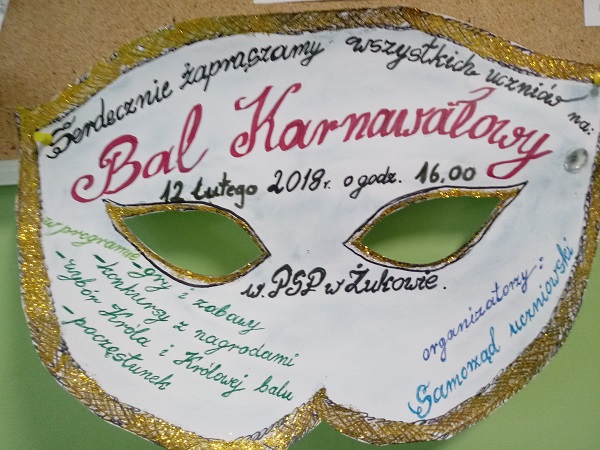 Serdecznie zapraszamy wszystkich uczniów na:
Bal Karnawałowy
12 lutego 2018r. o godz. 16.00
w. PSP w Żukowie.
w programie
- gry i zabawy
- konkursy z nagrodami
- wybór Króla i Królowej balu
- poczęstunek
organizatorzy:
Samorząd uczniowski